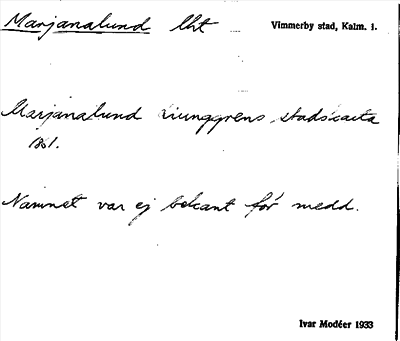 Marjanalund lht
Vimmerby stad, Kalm. l.
Marjanalund Ljunggrens stadskarta
1861.
Namnet var ej bekant för medd.
Ivar Modéer 1933